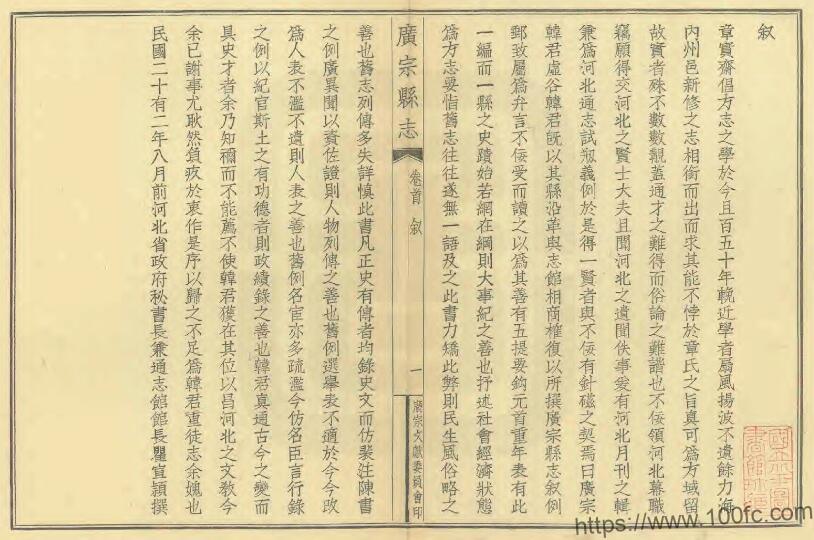 叙
章實齋倡方志之學於今且百五十年輓近學者扇風揚波不遺餘力海
內州邑新修之志相銜而出而求其能不悖於章氏之旨真可為方域留
故實者殊不數數覯蓋通才之難得而俗論之難諧也不佞領河北幕職
竊願得交河北之賢士大夫且聞河北之遺聞佚事爰有河北月刊之輯
兼為河北通志試瓶義例於是得一賢者與不佞有針磁之契焉曰廣宗
韓君虛谷韓君既以其縣沿革與志館相商榷復以所撰廣宗縣志叙例
郵致屬為弁言不佞受而讀之以為其善有五提要鉤元首重年表有此
一編而一縣之史蹟始若網在綱則大事紀之善也抒述社會經濟狀態
為方志要恉舊志往往遂無一語及之此書力矯此弊則民生風俗略之
廣宗縣志
卷首 叙
一
廣宗文獻委員會印
善也舊志列傳多失詳慎此書凡正史有傳者均錄史文而仿裴注陳書
之例廣異聞以資佐證則人物列傳之善也舊例選舉表不適於今今改
為人表不濫不遺則人表之善也舊例名宦亦多疏濫今仿名臣言行錄
之例以紀官斯土之有功德者則政績錄之善也韓君真通古今之變而
具史才者余乃知禰而不能薦不使韓君獲在其位以昌河北之文教今
余已謝事尤耿然負疚於衷作是序以歸之不足為韓君重徒志余媿也
民國二十有二年八月前河北省政府秘書長兼通志館館長瞿宣穎撰
https://www.100fc.com